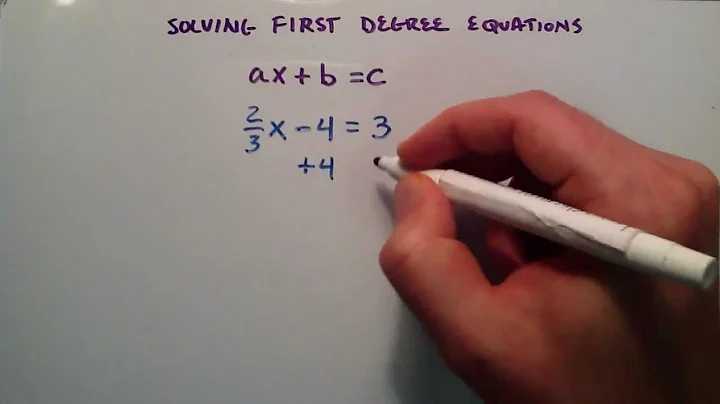 SOLVING FIRST DEGREE EQUATIONS
ax + b = c
2/3 x - 4 = 3
+4